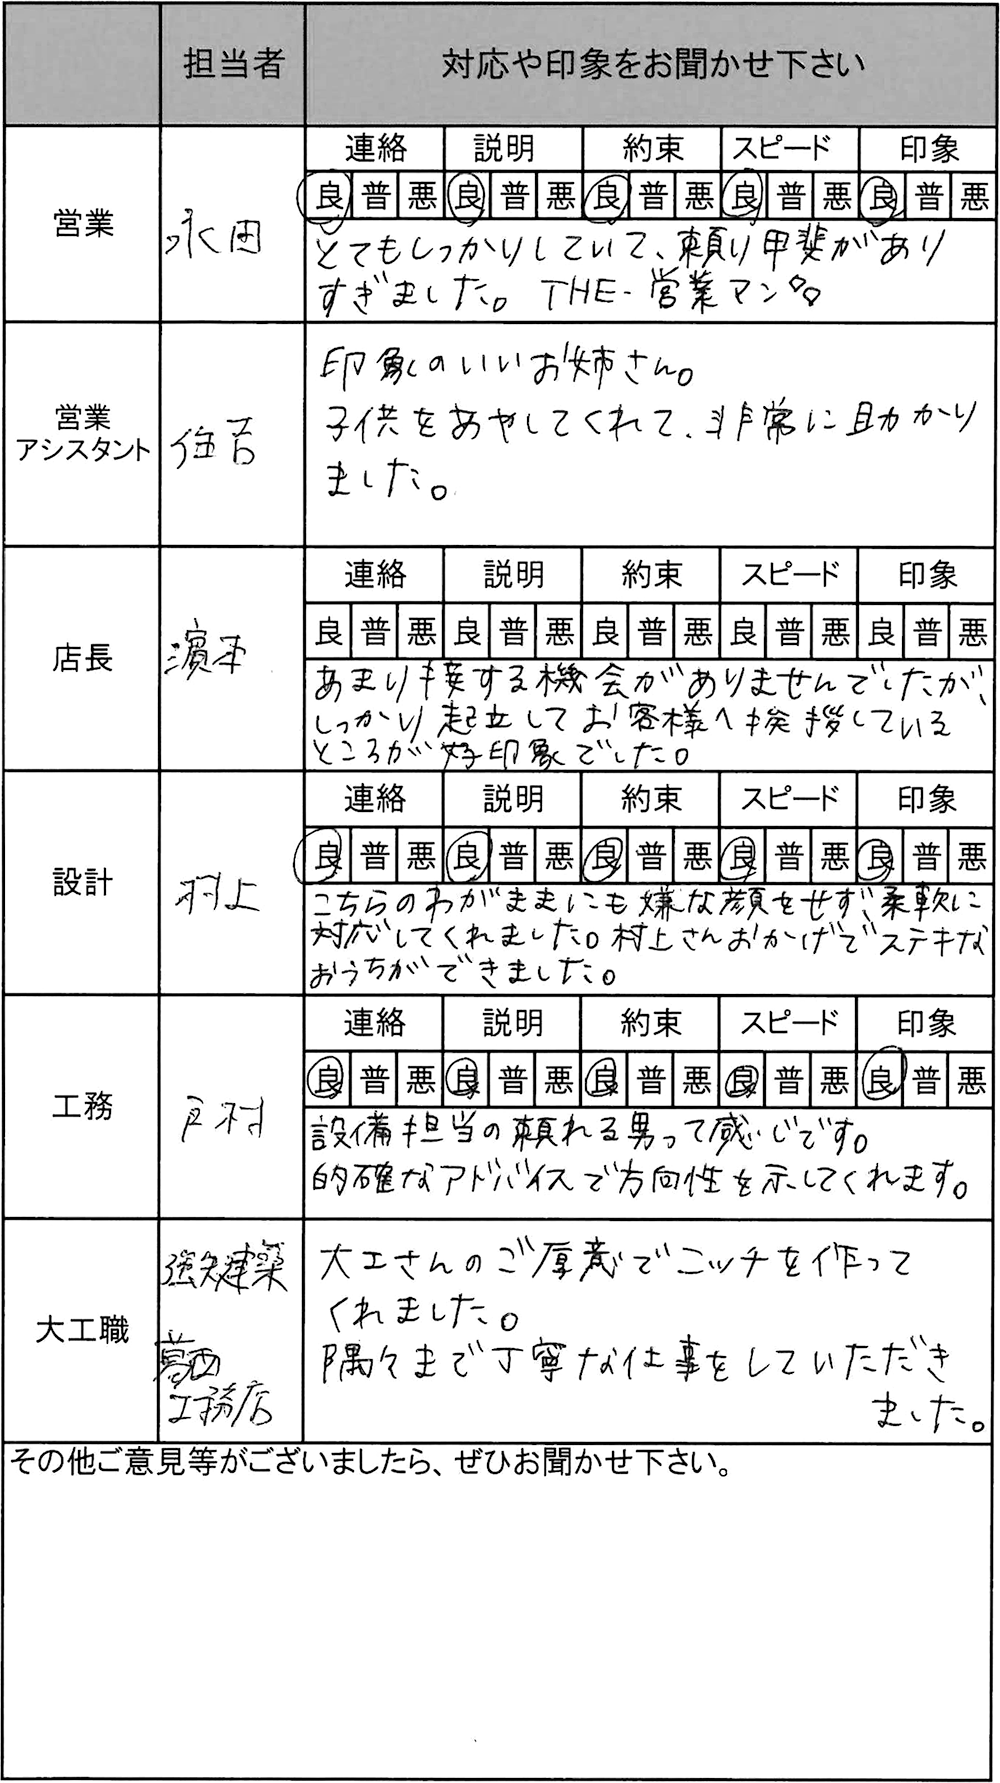 担当者 対応や印象をお聞かせ下さい
連絡 説明 約束 スピード 印象
良 普 悪 良 普 悪 良 普 悪 良 普 悪 良 普 悪
営業 永田
とてもしっかりしていて、頼り甲斐があり
すぎました。THE-営業マン
印象のいいお姉さん。
営業
アシスタント 住吉
子供をあやしてくれて、非常に助かり
ました。
連絡 説明 約束 スピード 印象
良 普 悪 良 普 悪 良 普 悪 良 普 悪 良 普 悪
店長 濱本
あまり接する機会がありませんでしたが、
しっかり起立してお客様へ挨拶している
ところが好印象でした。
連絡 説明 約束 スピード 印象
良 普 悪 良 普 悪 良 普 悪 良 普 悪 良 普 悪
設計 村上
こちらのわがままにも嫌な顔をせず、柔軟に
対応してくれました。村上さんおかげでステキな
おうちができました。
連絡 説明 約束 スピード 印象
良 普 悪 良 普 悪 良 普 悪 良 普 悪 良 普 悪
工務 戸村
設備担当の頼れる男って感じです。
的確なアドバイスで方向性を示してくれます。
大工職
建築
葛西
工務店
大工さんのご厚意でニッチを作って
くれました。
隅々まで丁寧な仕事をしていただき
ました。
その他ご意見等がございましたら、ぜひお聞かせ下さい。